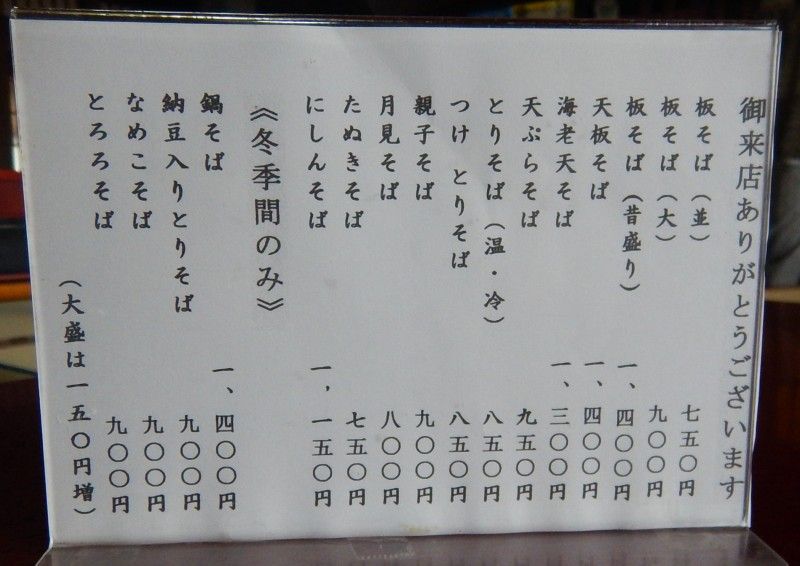 御来店ありがとうございます
板そば（並） 七五〇円
板そば（大） 九〇〇円
板そば（昔盛り） 一、四〇〇円
天板そば 一、四〇〇円
海老天そば 一、三〇〇円
天ぷらそば 九五〇円
とりそば（温・冷） 八五〇円
つけ とりそば 八五〇円
親子そば 九〇〇円
月見そば 八〇〇円
たぬきそば 七五〇円
にしんそば 一、一五〇円
《冬季間のみ》
鍋そば 一、四〇〇円
納豆入りとりそば 九〇〇円
なめこそば 九〇〇円
とろろそば 九〇〇円
（大盛は一五〇円増）